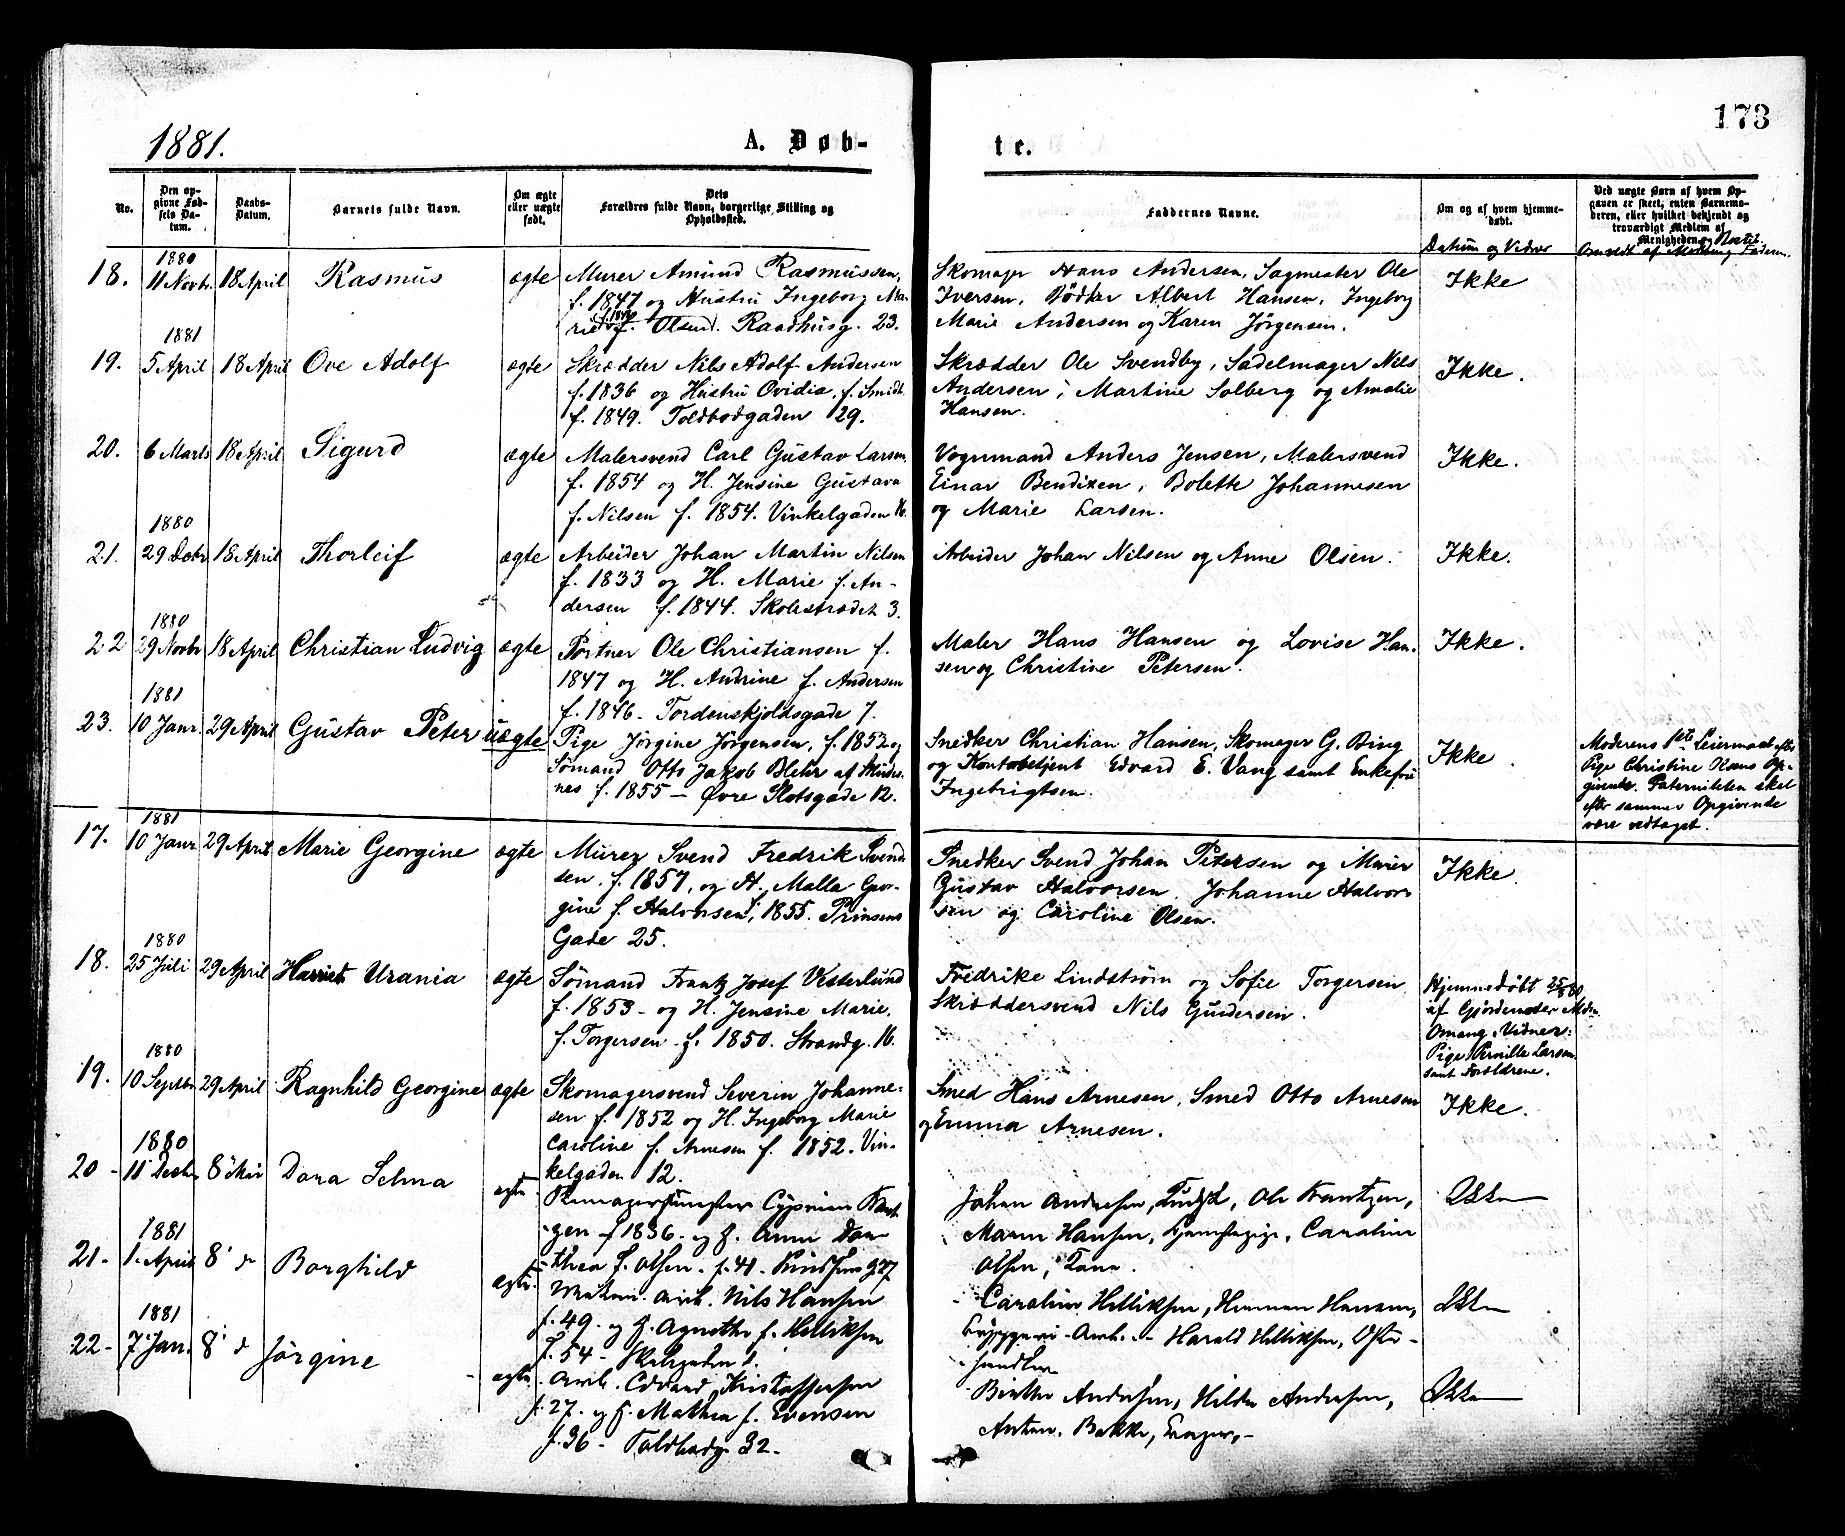 1881.
A. Døb-
te.
173
No.
Den op-
givne Fød-
sels Da-
tum.
Daabs-
Datum.
Barnets fulde Navn.
Om ægte
eller uægte
født.
Dets
Forældres fulde Navn, borgerlige Stilling og
Opholdssted.
Faddernes Navne.
Om og af hvem hjemme-
døbt.
Datum og Vidner
Ved uægte Børn af hvem Op-
gaven er skeet, enten Barnemo-
deren, eller hvilket bekjendt og
troværdigt Medlem af
Menigheden
18.
1880
11 Novbr
18 April
Rasmus
ægte
Murer Amund Rasmussen,
f. 1847 og Hustru Ingeborg Ma-
rie f. Olsen. Raadhusg. 23.
Skomager Hans Andersen, Sagmester Ole
Iversen, Bødker Albert Hansen, Ingeborg
Marie Andersen og Karen Jørgensen.
Ikke
19.
1881
5 April
18 April
Ove Adolf
ægte
Skrædder Nils Adolf Andersen
f. 1836 og Hustru Ovidia, f. Smidt
f. 1849. Toldbodgaden 29.
Skrædder Ole Svendby, Sadelmager Nils
Andersen, Martine Solberg og Amalie
Hansen.
Ikke.
20.
6 Marts
18 April
Sigurd
ægte
Malersvend Carl Gustav Larsen
f. 1854 og H. Jensine Gustava
f. Nilsen f. 1854. Vinkelgaden 16.
Vognmand Anders Jensen, Malersvend
Einar Bendixen, Bolette Johannesen
og Marie Larsen.
Ikke.
21.
1880
29 Decbr
18 April
Thorleif
ægte
Arbeider Johan Martin Nilsen
f. 1833 og H. Marie f. An-
dersen f. 1844. Skolestrædet 3.
Arbeider Johan Nilsen og Anne Olsen.
Ikke.
22
1880
29 Novbr
18 April
Christian Ludvig
ægte
Portner Ole Christiansen f.
1847 og H. Andrine f. Andersen
f. 1846. Tordenskjoldsgade 7.
Maler Hans Hansen og Lovise Han-
sen og Christine Petersen.
Ikke.
23.
1881
10 Janr.
29 April
Gustav Peter
uægte
Pige Jørgine Jørgensen, f. 1853 og
Sømand Otto Jakob Blehr af
nes f. 1855 – Øvre Slotsgade 12.
Snedker Christian Hansen, Skomager G. Bing
og Kontobetjent Edvard E. Vang samt Enkefru
Ingebrigtsen.
Ikke
Moderens 1ste Leiermaal efter
Pige Christine Olsens Op-
givende. Paterniteten skal
efter sammes Opgivende
være vedtaget.
17.
1881
10 Janr
29 April
Marie Georgine
ægte
Murer Svend Fredrik Svend-
sen. f. 1857, og H. Malla Geor-
gine f. Halvorsen, 1855. Prinsens
Gade 25.
Snedker Svend Johan Petersen og Murer
Gustav Halvorsen, Johanne Halvor-
sen og Caroline Olsen.
Ikke.
18.
1880
25 Juli
29 April
Harriet Urania
ægte
Sømand Frantz Josef Vesterlund
f. 1853 – og H. Jensine Marie,
f. Torgersen f. 1850. Strandg. 16.
Fredrike Lindstrøm og Sofie Torgersen
Skræddersvend Nils Gundersen.
Hjemmedøbt
af Gjordemoder
Omang. Vidner:
Pige Pernille Larsen
samt Forældrene.
19.
1880
10 Septbr
29 April
Ragnhild Georgine
ægte
Skomagersvend Severin Johanne-
sen f. 1852 og H. Ingeborg Marie
Caroline f. Arnesen f. 1852. Vin-
kelgaden 12.
Smed Hans Arnesen, Smed Otto Arnesen
og Emma Arnesen.
Ikke.
20 -
1880
11 Decbr
8' Mai
Dora Selma
ægte
gen f 1836. og H. Anna Dor-
thea f. Olsen
Johan Andersen, Ole Frantzen,
Maren Hansen, Caroline
Olsen,
Ikke
21.-
1881
1. April
8' d
Borghild
ægte
Arb. Nils Hansen
f. 49 - og H. Agnethe f. Hilliksen
f. 54 -
Caroline Hilliksen, Herman Hansen,
Harald Hilliksen,
Ikke
22-
1881
7' Jan.
8' d
Jørgine
ægte
Arb. Edvard Kristoffersen
f. 27. og H. Mathea f. Evensen
f. 36 - Toldbodg. 32-
Birthe Andersen, Hilda Andersen,
Anton Bakke,
Ikke